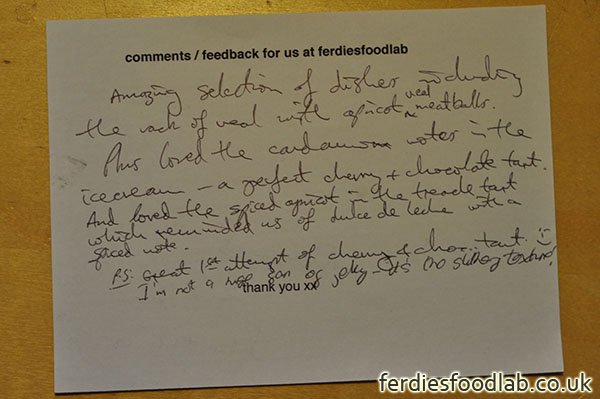 comments / feedback for us at ferdiesfoodlab
Amazing selection of dishes including
the rack of veal with apricot ^ veal meatballs.
Plus loved the cardamom notes in the
icecream – a perfect cherry + chocolate tart.
And loved the spiced apricot in the treacle tart
which reminded us of dulce de leche with a
spiced note.
PS: Great 1st attempt of cherry & choc. tart. :)
I'm not a huge fan of jelly – its too slippery texture!
thank you xx
ferdiesfoodlab.co.uk